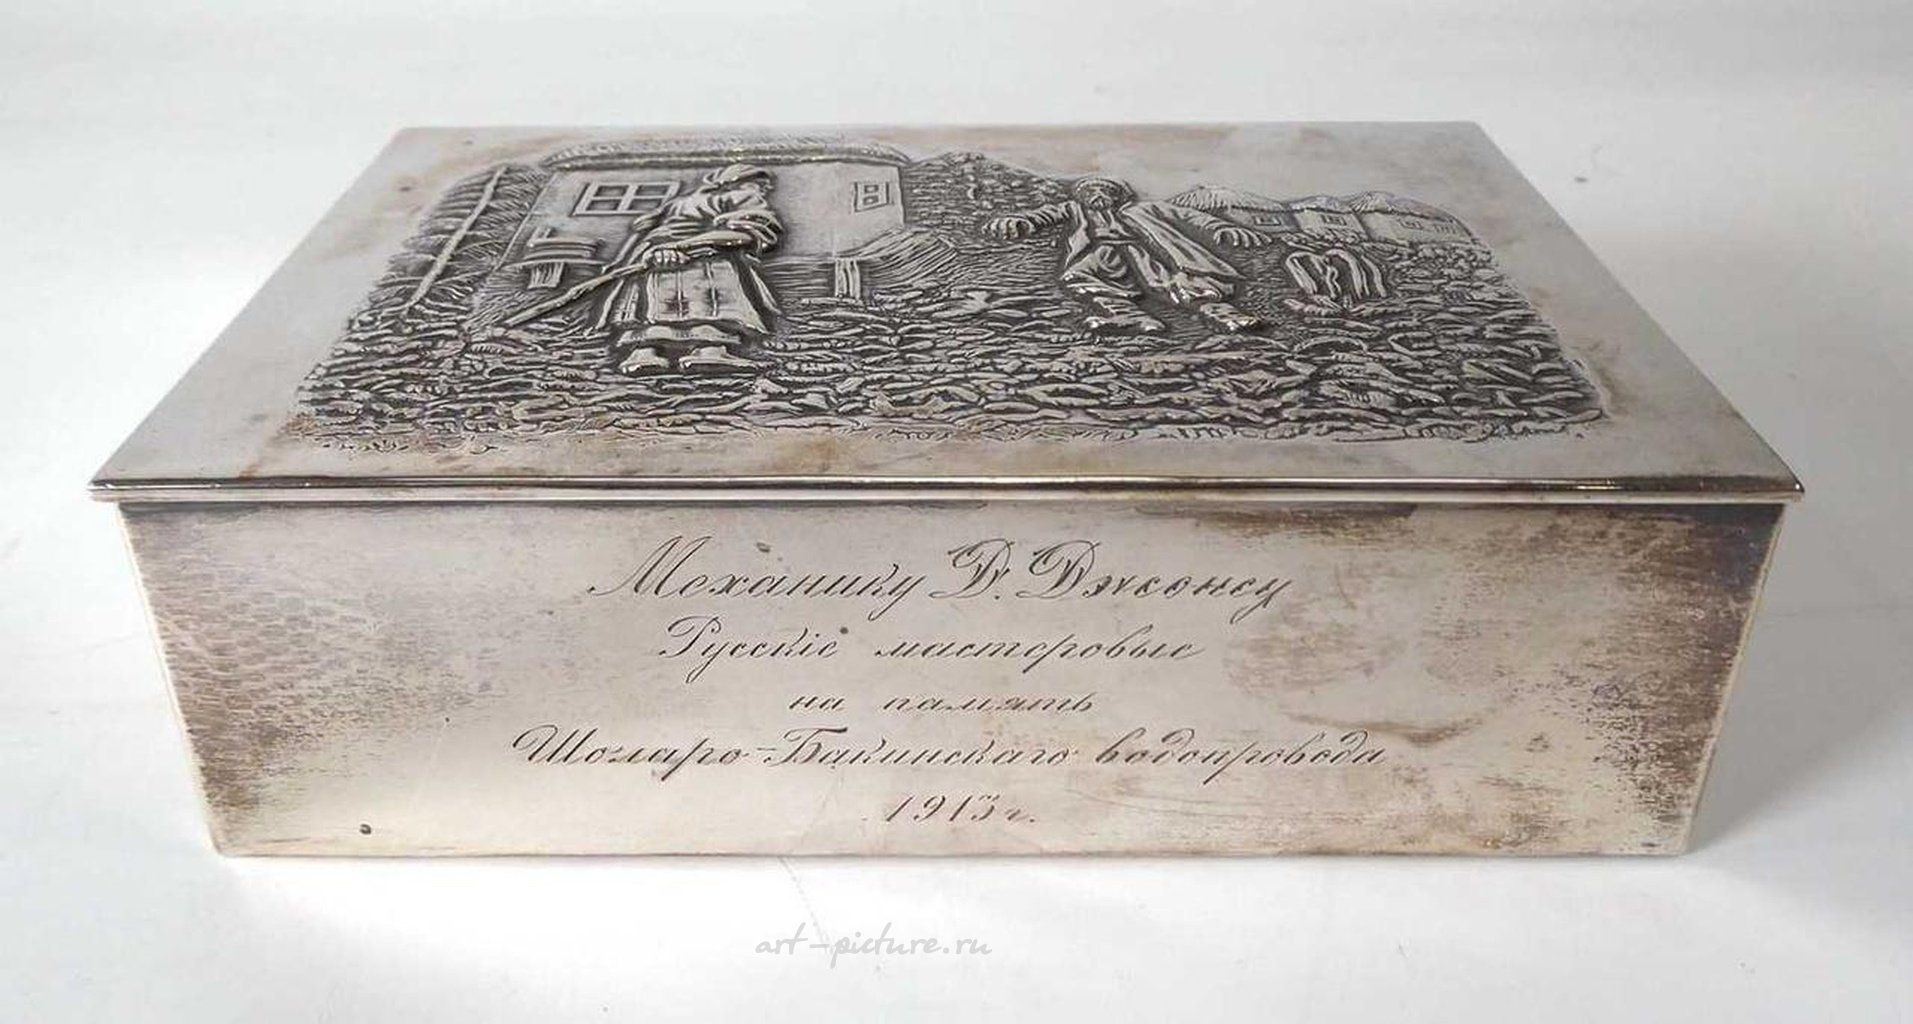 Механику Д. Джонсу
Русскіе мастеровые
на память
Шолларо-Бакинскаго водопровода
1913 г.
art-picture.ru